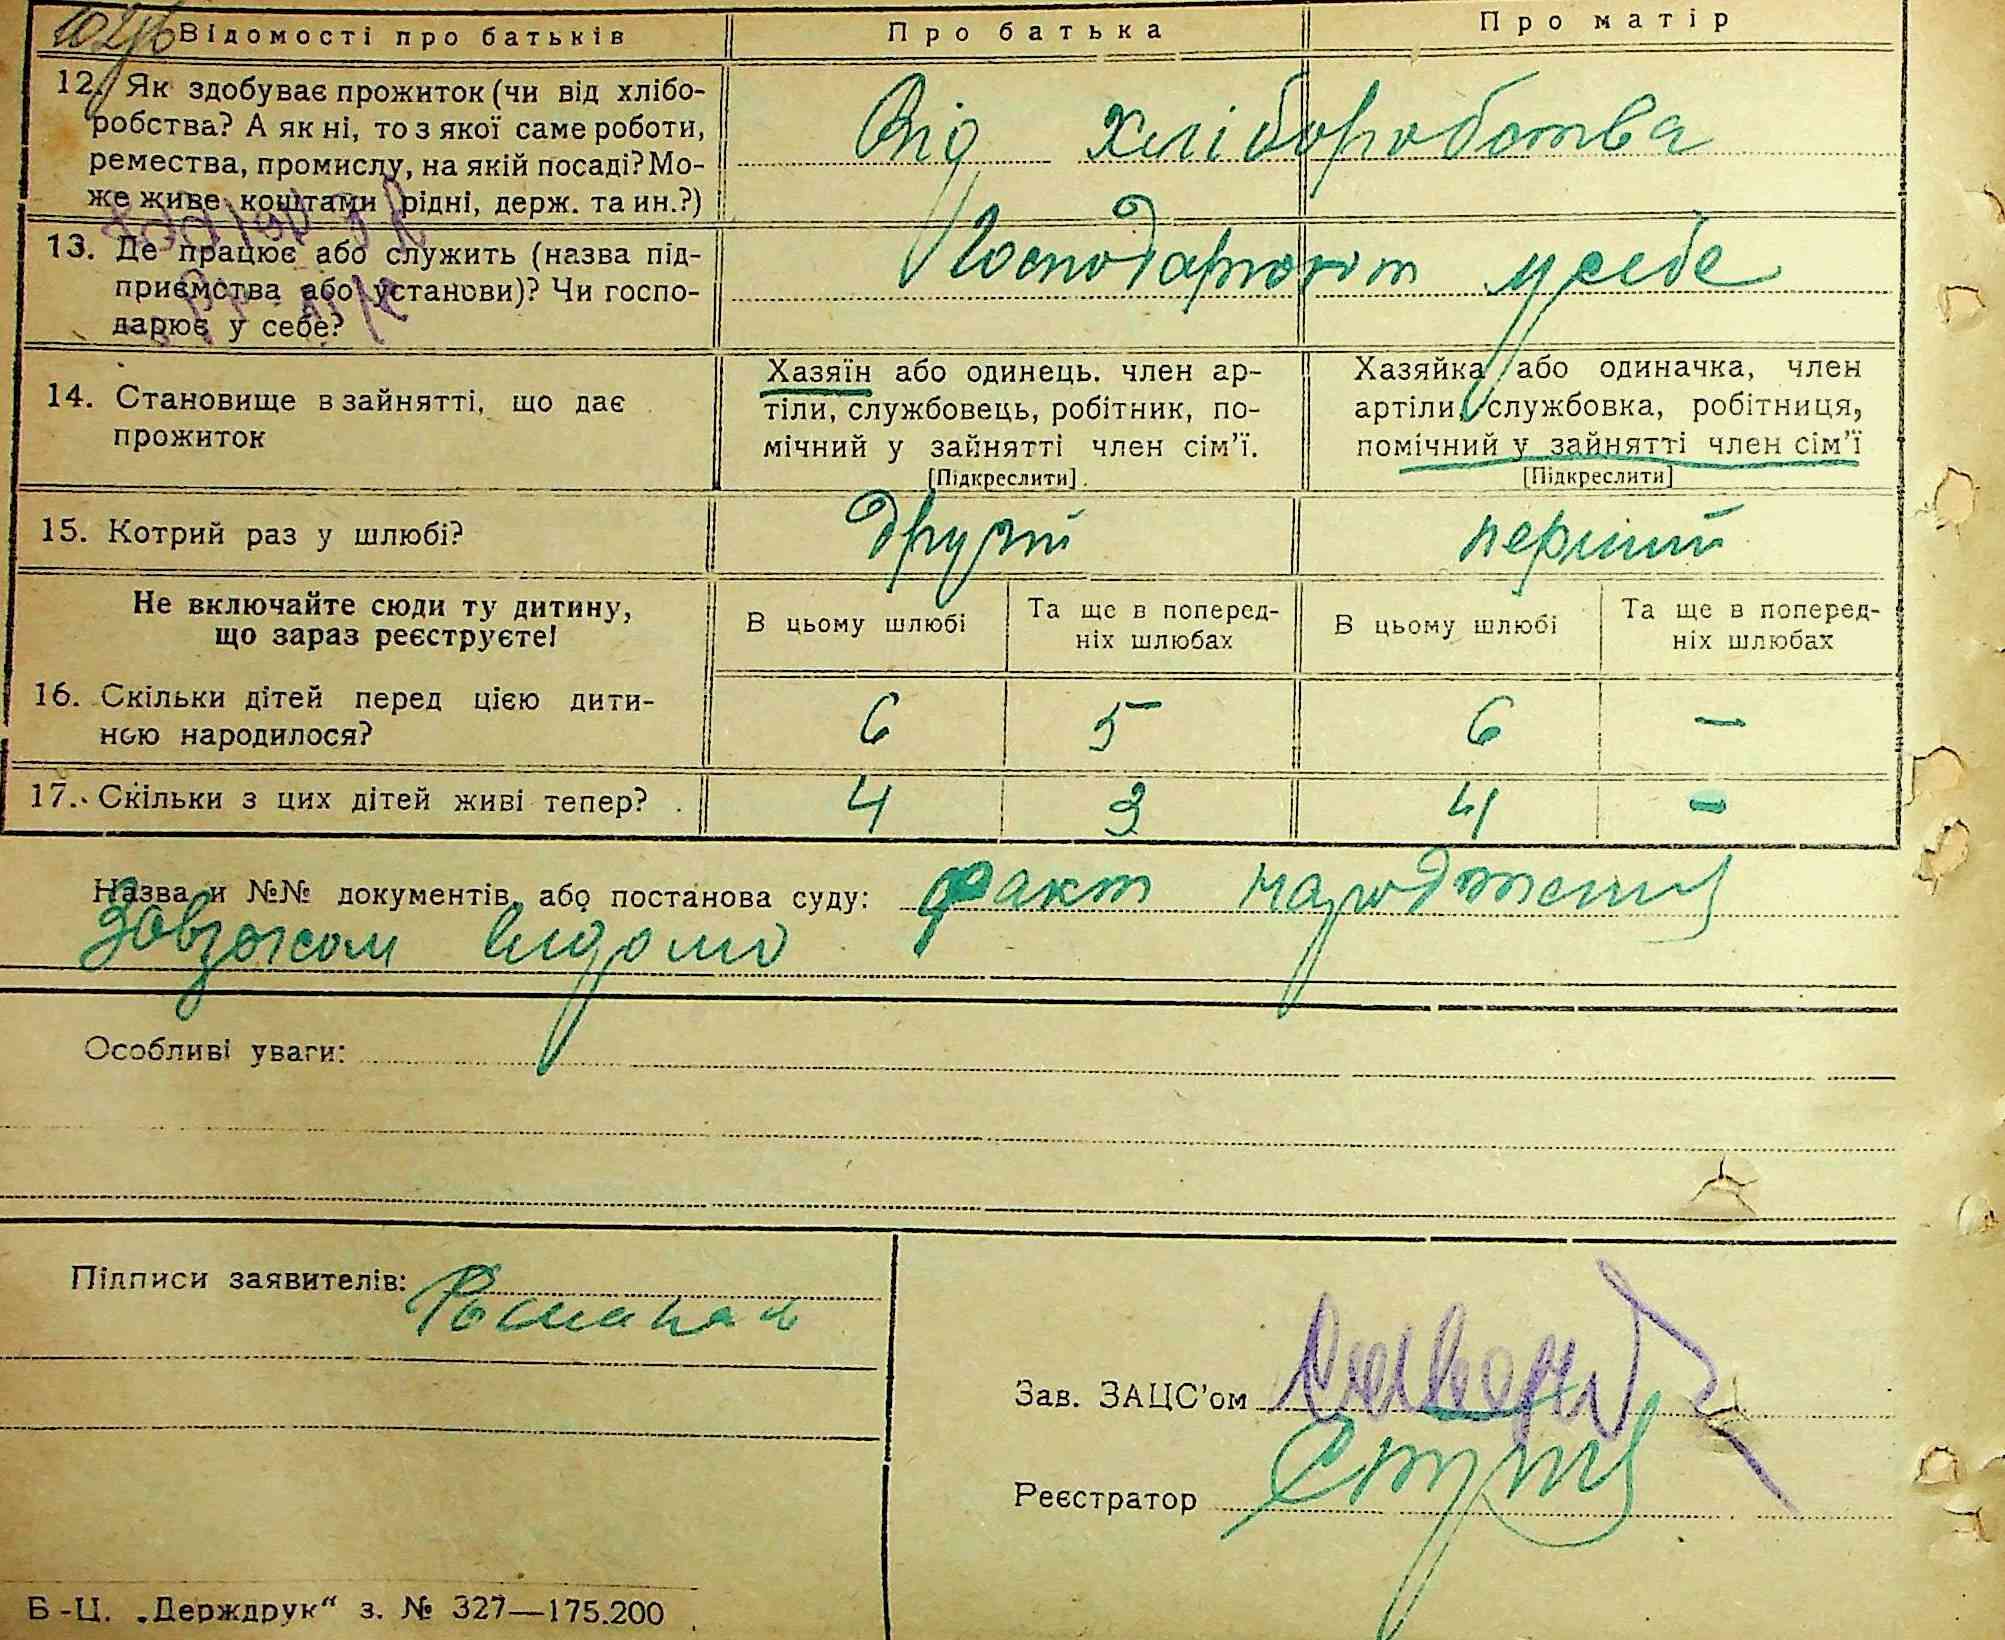 Відомості про батьків Про батька Про матір
12. Як здобуває прожиток (чи від хлібо-
робства? А як ні, то з якої саме роботи,
ремества, промислу, на якій посаді? Мо-
же живе коштами рідні, держ. та ин.?)
Від хліборобства
13. Де працює або служить (назва під-
приємства або установи)? Чи госпо-
дарює у себе?
Господарюют у себе
14. Становище в зайнятті, що дає
прожиток
Хазяїн або одинець. член ар-
тіли, службовець, робітник, по-
мічний у зайнятті член сім'ї.
[Підкреслити].
Хазяйка або одиначка, член
артіли, службовка, робітниця,
помічний у зайнятті член сім'ї
[Підкреслити]
15. Котрий раз у шлюбі? другий перший
Не включайте сюди ту дитину,
що зараз реєструєте!
В цьому шлюбі
Та ще в поперед-
ніх шлюбах
В цьому шлюбі
Та ще в поперед-
ніх шлюбах
16. Скільки дітей перед цією дити-
ною народилося?
6 5 6 –
17. Скільки з цих дітей живі тепер? 4 3 4 –
Назва и №№ документів, або постанова суду: факт народження
завзагсом видомо
Особливі уваги:
Підписи заявителів:
Зав. ЗАЦС'ом
Реєстратор
Б-Ц. „Держдрук“ з. № 327—175.200